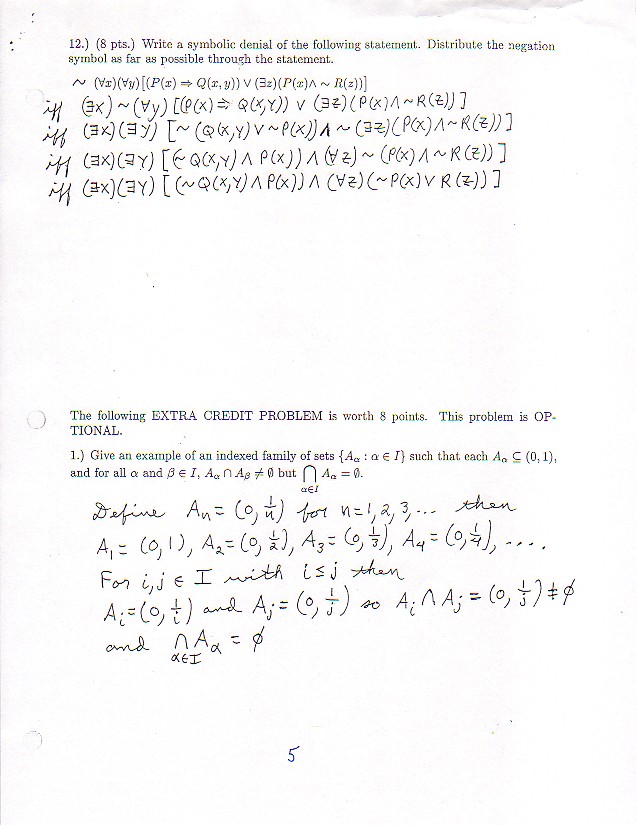 12.) (8 pts.) Write a symbolic denial of the following statement. Distribute the negation
symbol as far as possible through the statement.
~ (∀x)(∀y)[(P(x) ⇒ Q(x, y)) ∨ (∃z)(P(x)∧ ~ R(z))]
iff (∃x) ~ (∀y) [(P(x) ⇒ Q(x,y)) ∨ (∃z)(P(x) ∧ ~R(z))]
iff (∃x)(∃y) [~ (Q(x,y) ∨ ~P(x)) ∧ ~ (∃z)(P(x) ∧ ~R(z))]
iff (∃x)(∃y) [(~Q(x,y) ∧ P(x)) ∧ (∀z) ~ (P(x) ∧ ~R(z))]
iff (∃x)(∃y) [(~Q(x,y) ∧ P(x)) ∧ (∀z)(~P(x) ∨ R(z))]
The following EXTRA CREDIT PROBLEM is worth 8 points. This problem is OP-
TIONAL.
1.) Give an example of an indexed family of sets {Aα : α ∈ I} such that each Aα ⊆ (0, 1),
and for all α and β ∈ I, Aα ∩ Aβ ≠ ∅ but ⋂ Aα = ∅.
α∈I
Define An = (0, 1/n) for n=1,2,3,... then
A1 = (0,1), A2 = (0, 1/2), A3 = (0, 1/3), A4 = (0, 1/4), ....
For i,j ∈ I with i≤j then
Ai = (0, 1/i) and Aj = (0, 1/j) so Ai ∩ Aj = (0, 1/j) ≠ ∅
and ∩ Aα = ∅
α∈I
5